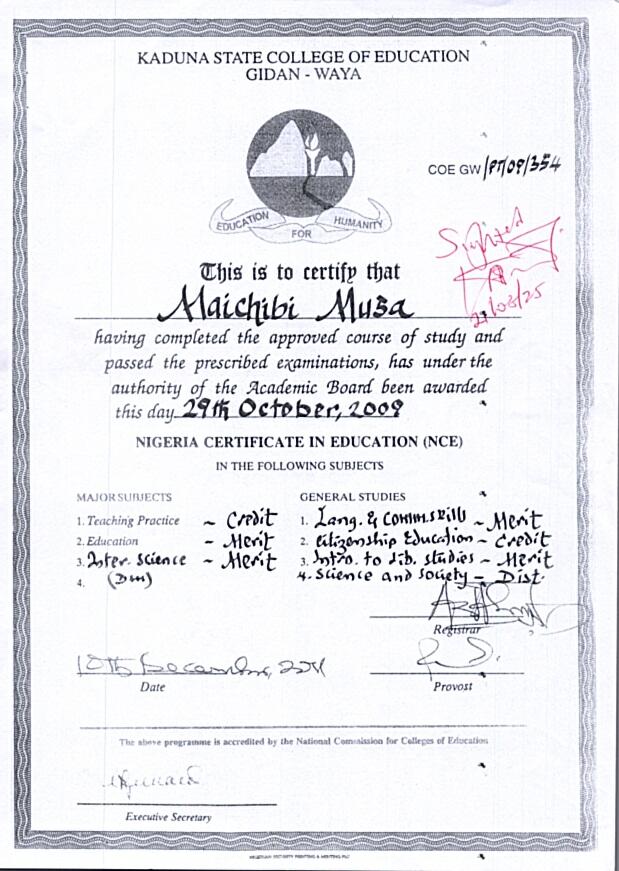 KADUNA STATE COLLEGE OF EDUCATION
GIDAN - WAYA
COE GW/PT/09/354
EDUCATION FOR HUMANITY
Sighted
21/08/25
This is to certify that
Maichibi Musa
having completed the approved course of study and
passed the prescribed examinations, has under the
authority of the Academic Board been awarded
this day 29th October, 2009
NIGERIA CERTIFICATE IN EDUCATION (NCE)
IN THE FOLLOWING SUBJECTS
MAJOR SUBJECTS
1. Teaching Practice ~ Credit
2. Education ~ Merit
3. Inter. Science ~ Merit
4. (DM)
GENERAL STUDIES
1. Lang. & Comm. skills ~ Merit
2. Citizenship Education ~ Credit
3. Intro. to Lib. studies ~ Merit
4. Science and Society ~ Dist.
Registrar
10th December, 2011
Date
Provost
The above programme is accredited by the National Commission for Colleges of Education
Executive Secretary
NIGERIAN SECURITY PRINTING & MINTING PLC